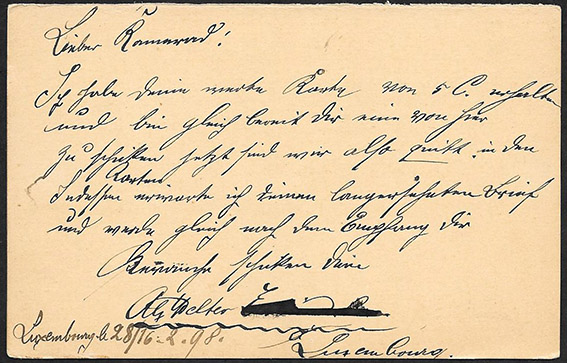 Lieber Kamerad!
Ich habe deine werte Karte von 5 C. erhalten
und bin gleich bereit dir eine von hier
zu schicken jetzt sind wir also quitt in den
Karten
Indessen erwarte ich deinen langersehnten Brief
und werde gleich nach dem Empfang dir
Revanche schicken dein
Welter
Luxembourg.
Luxembourg le 28/16. 2. 98.